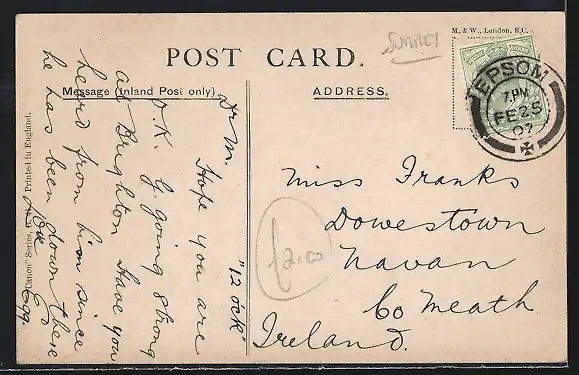 M. & W., London, E.C.
SURREY
POST CARD.
Message (Inland Post only)
ADDRESS.
EPSOM
7. PM
FE 25
07
"12 ock"
Dr M.
Hope you are
O.K. G. going strong
at Brighton Have you
heard from him since
he has been down there
Egg
Miss Franks
Dowestown
Navan
Co Meath
Ireland.
£2.00
"Canon" Series,
Printed in England.